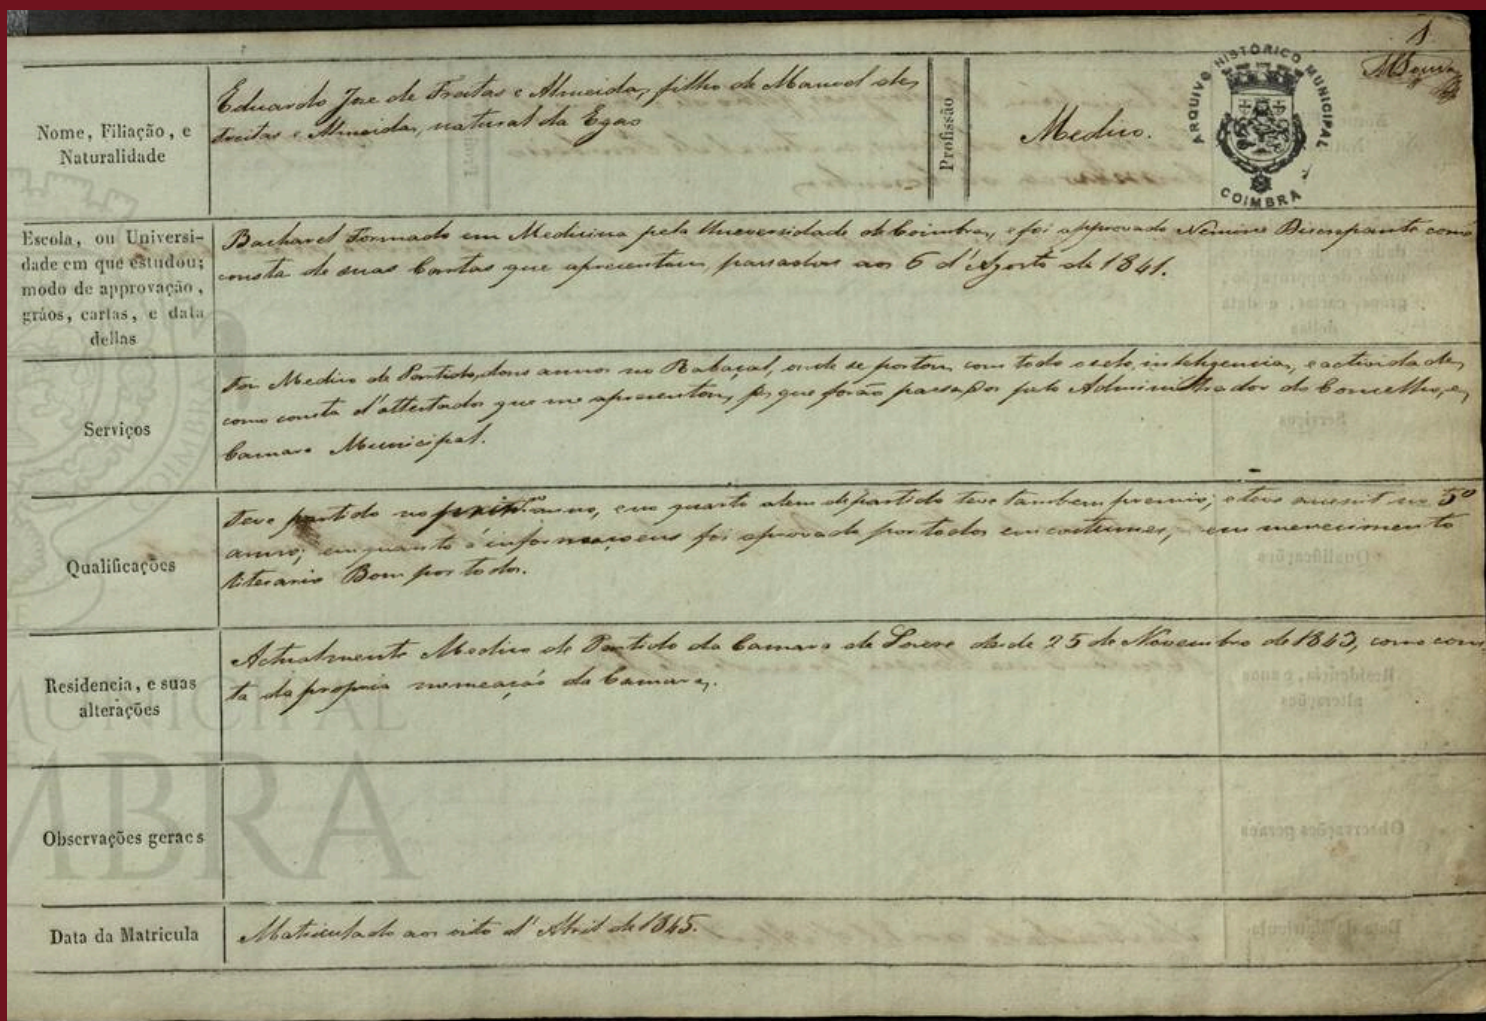 1
MSousa
Nome, Filiação, e
Naturalidade
Eduardo Joze de Freitas e Almeida, filho de Manoel de
Freitas e Almeida, natural da Egao
Profissão
Medico.
ARQUIVO HISTÓRICO MUNICIPAL
COIMBRA
Escola, ou Universi-
dade em que estudou;
modo de approvação,
gráos, cartas, e data
dellas
Bacharel Formado em Medicina pela Universidade de Coimbra, e foi approvado Nemine Discrepante como
consta de suas Cartas que apresentou, passadas aos 6 d'Agosto de 1841.
Serviços
Foi Medico de Partido, dous annos no Rabaçal, onde se portou com todo o zelo, inteligencia, e actividade,
como consta d'attestados que me apresentou, que forão passados pelo Administrador do Concelho, e,
Camara Municipal.
Qualificações
Teve partido no anno, e no quarto alem de partido teve tambem premio; e teve accessit no 5º
anno; em quanto á informaçoens foi aprovado por todos em costumes, em merecimento
literario Bom por todos.
Residencia, e suas
alterações
Actualmente Medico de Partido da Camara de Soure desde 25 de Novembro de 1843, como cons-
ta da propria nomeação da Camara.
Observações geraes
Data da Matricula
Matriculado aos oito d'Abril de 1845.
MUNICIPAL
MBRA